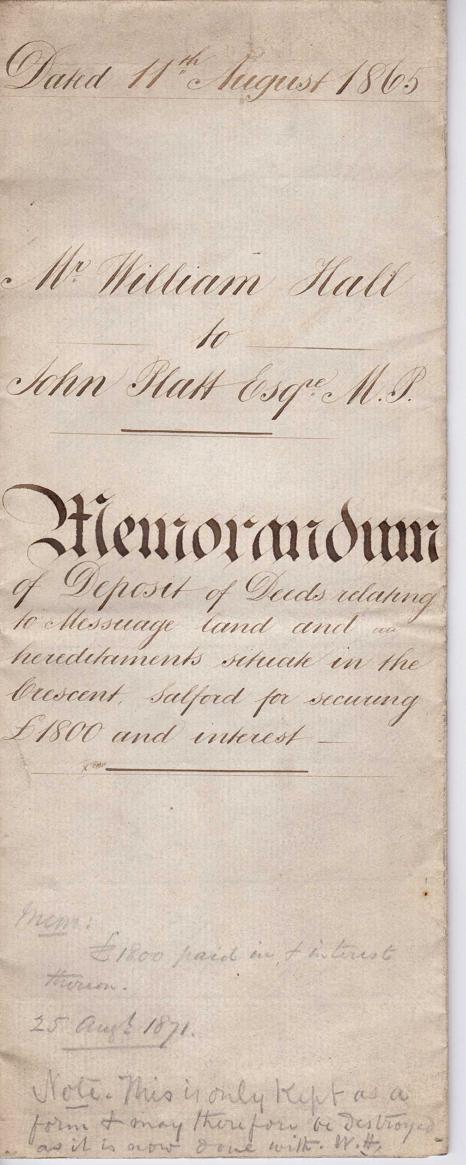 Dated 11th August 1865
Mr William Hall
to
John Platt Esqre M.P.
Memorandum
of Deposit of Deeds relating
to Messuage land and
hereditaments situate in the
Crescent, Salford for securing
£1800 and interest —
Mem:
£1800 paid in, & interest
thereon.
25 Augt 1871.
Note. This is only kept as a
form & may therefore be destroyed
as it is now done with. W.H.